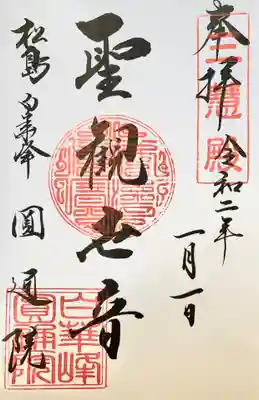 三慧殿
奉拝 令和二年
一月一日
聖觀世音
松島 白華峯 圓通院
白華峰
圓通院